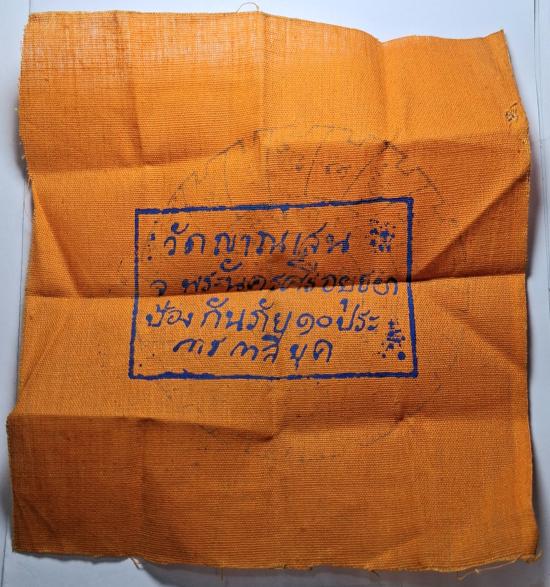 วัดญาณเสน
จ พระนครศรีอยุธยา
ป้องกันภัย๑๐ประ
การ กลียุค